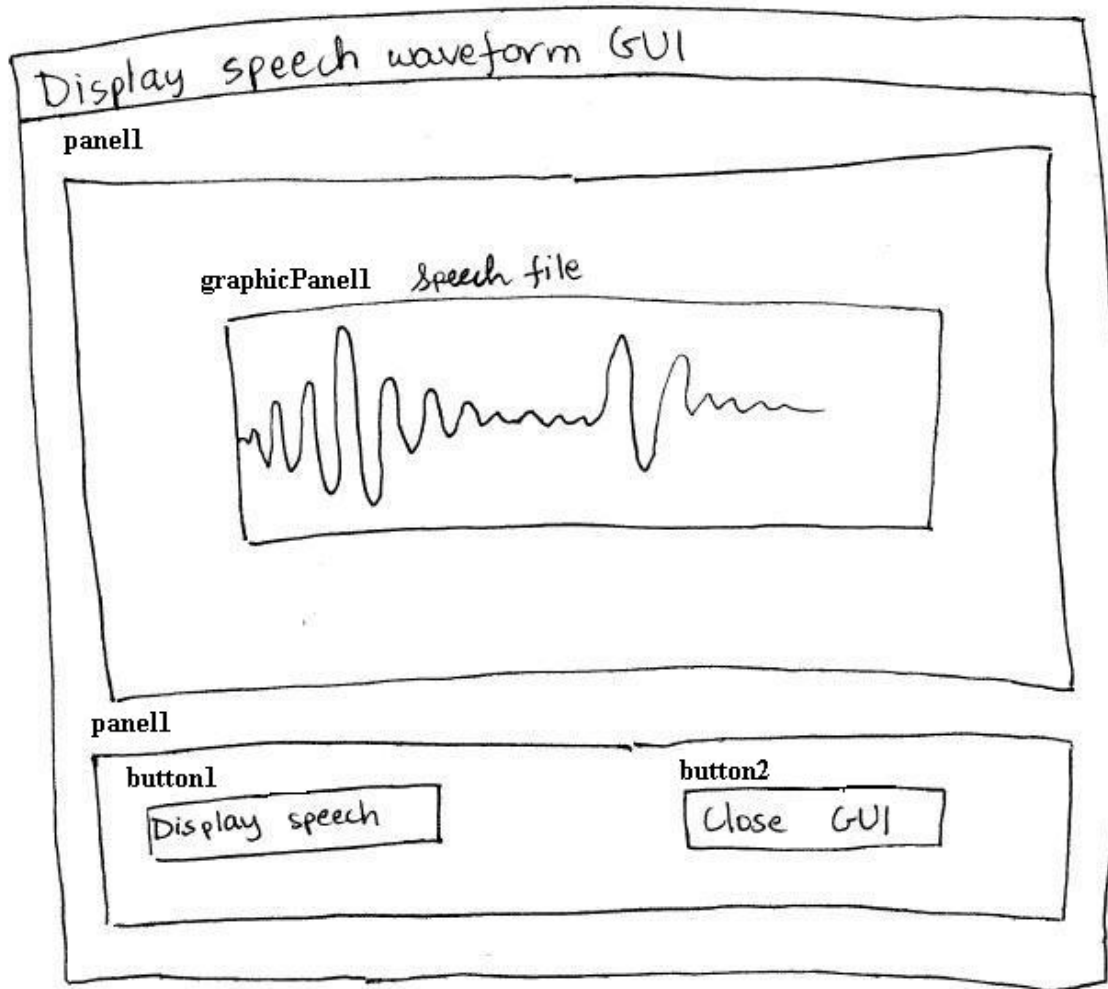 Display speech waveform GUI
panel1
graphicPanel1 speech file
panel1
button1 button2
Display speech Close GUI